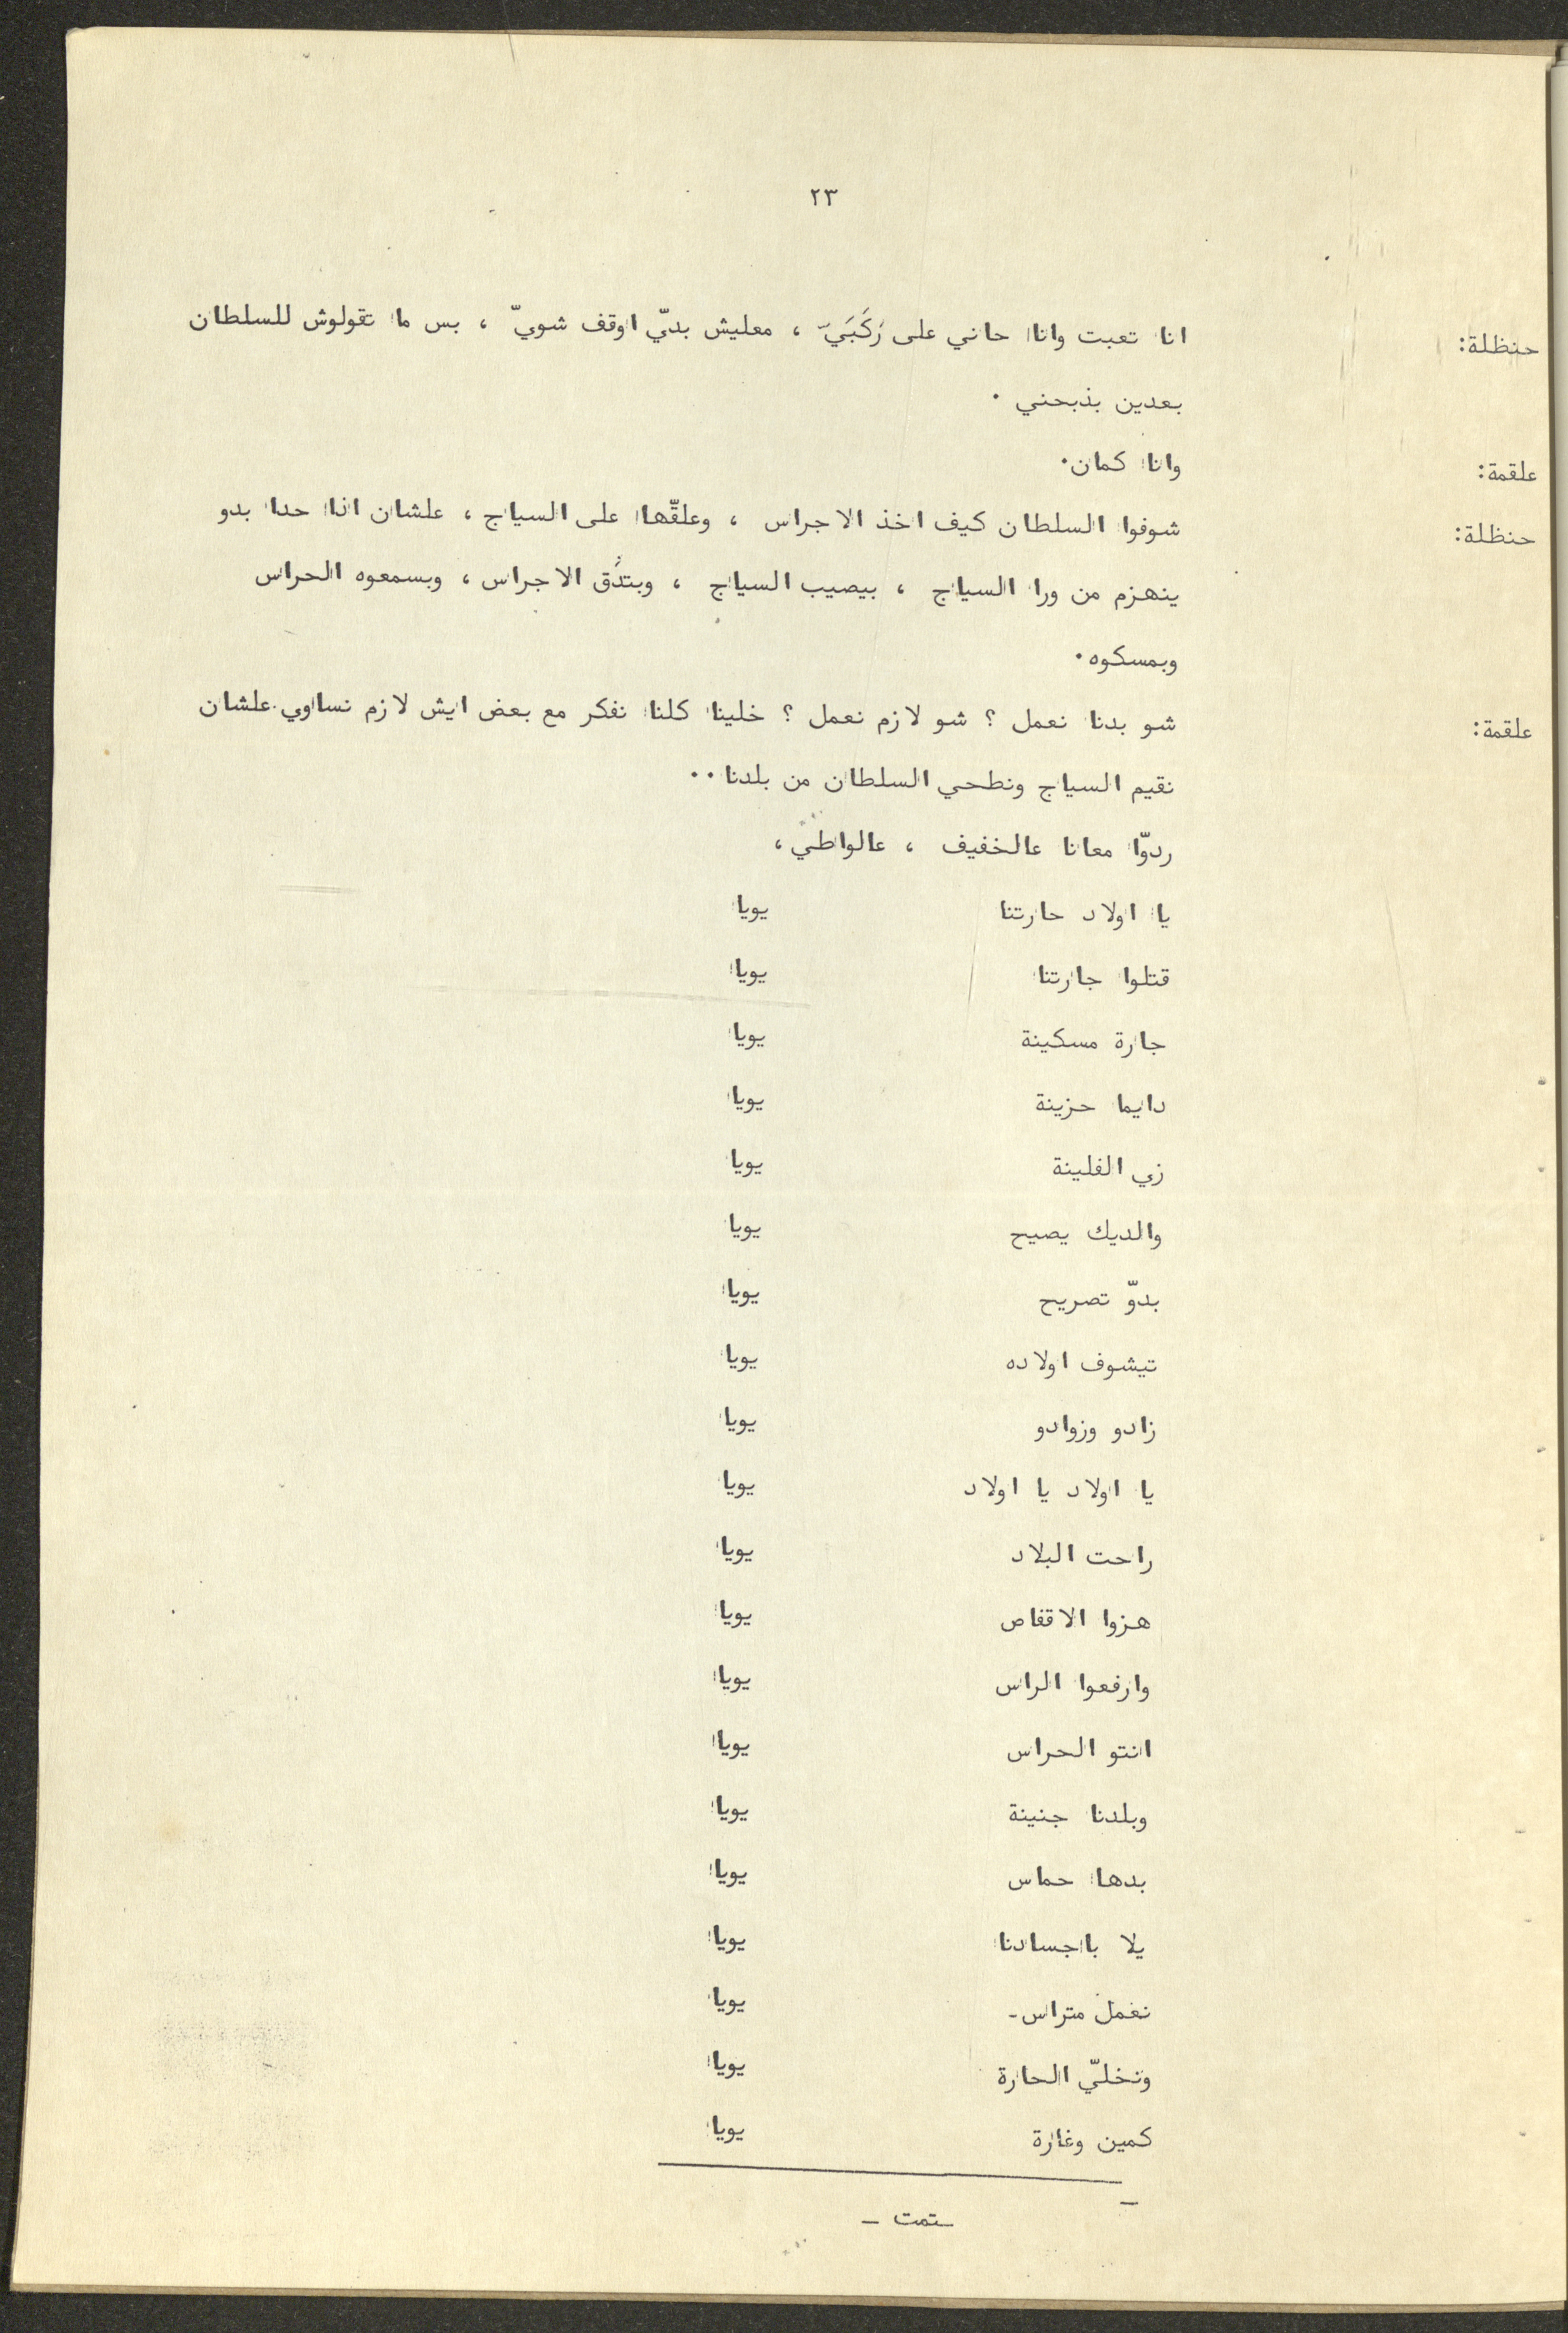 ٢٣
حنظلة: انا تعبت وانا حاني على رَكَبَيّ ، معليش بديّ اوقف شويّ ، بس ما تقولوش للسلطان
بعدين بذبحني ٠
علقمة: وانا كمان٠
حنظلة: شوفوا السلطان كيف اخذ الاجراس ، وعلقّها على السياج ، علشان اذا حدا بدو
ينهزم من ورا السياج ، بيصيب السياج ، وبتدُق الاجراس ، وبسمعوه الحراس
وبمسكوه٠
علقمة: شو بدنا نعمل ؟ شو لازم نعمل ؟ خلينا كلنا نفكر مع بعض ايش لازم نساوي علشان
نقيم السياج ونطحي السلطان من بلدنا٠٠
ردوّا معانا عالخفيف ، عالواطي ،
يا اولاد حارتنا يويا
قتلوا جارتنا يويا
جارة مسكينة يويا
دايما حزينة يويا
زي الفلينة يويا
والديك يصيح يويا
بدوّ تصريح يويا
تيشوف اولاده يويا
زادو وزوادو يويا
يا اولاد يا اولاد يويا
راحت البلاد يويا
هزوا الاقفاص يويا
وارفعوا الراس يويا
انتو الحراس يويا
وبلدنا جنينة يويا
بدها حماس يويا
يلا باجسادنا يويا
نعمل متراس - يويا
ونخليّ الحارة يويا
كمين وغارة يويا
ـ تمت ـ